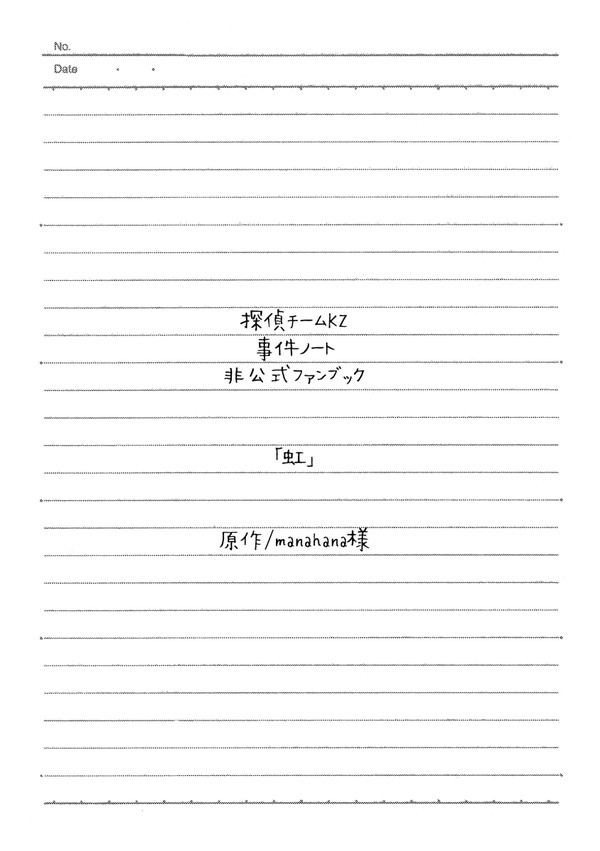 No.
Date ・ ・
探偵チームKZ
事件ノート
非公式ファンブック
「虹」
原作/manahana様